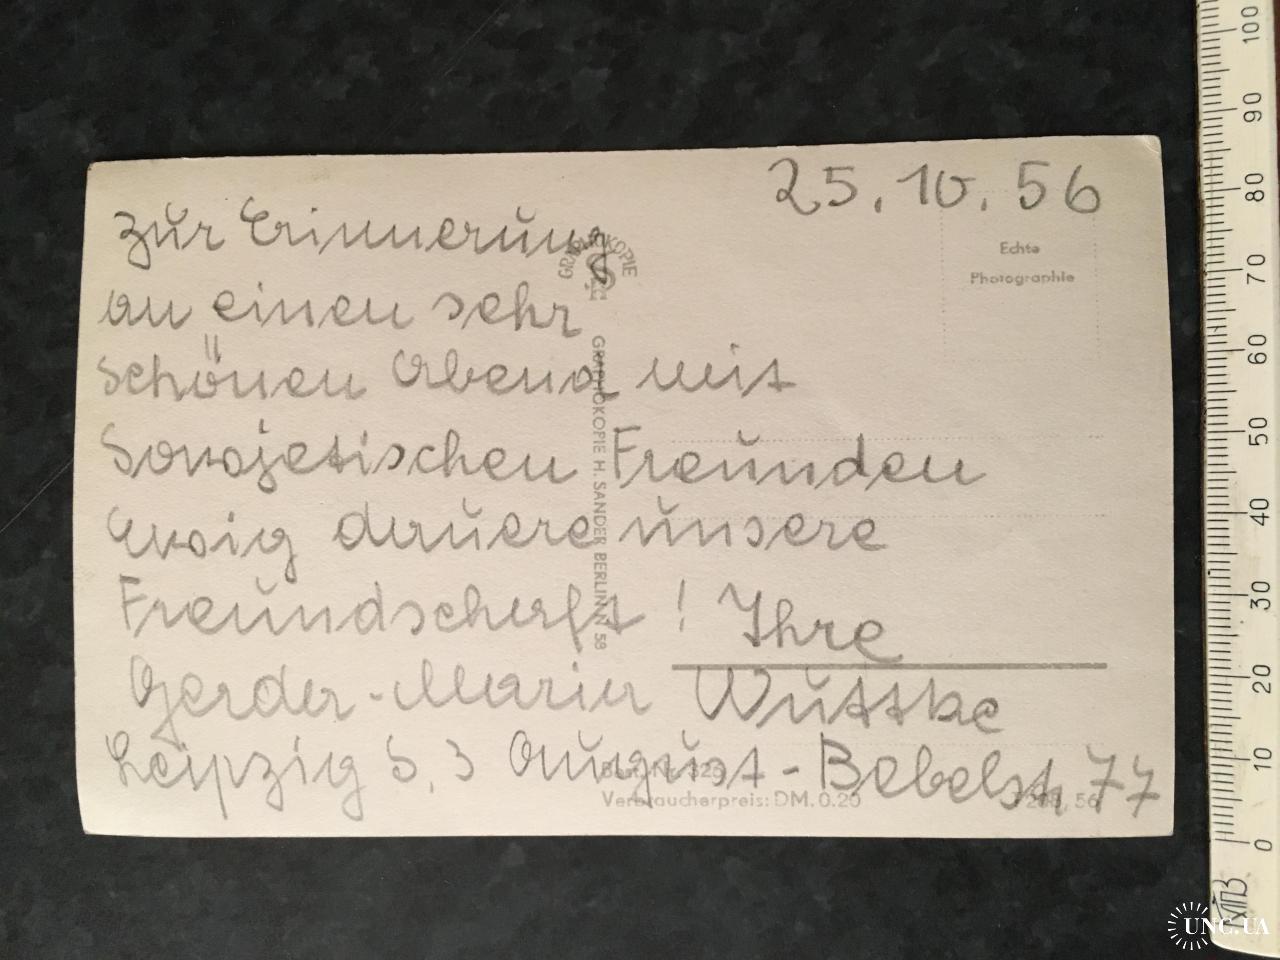 25. 10. 56
Zur Erinnerung
an einen sehr
schönen Abend mit
Sowjetischen Freunden
Ewig dauere unsere
Freundschaft! Ihre
Gerda-Maria Wuttke
Leipzig S. 3 August-Bebelstr. 77
Echte
Photographie
GRAPHOKOPIE
GRAPHOKOPIE H. SANDER BERLIN N 58
Verbraucherpreis: DM. 0.20
100
90
80
70
60
50
40
30
20
10
0
UNC.UA